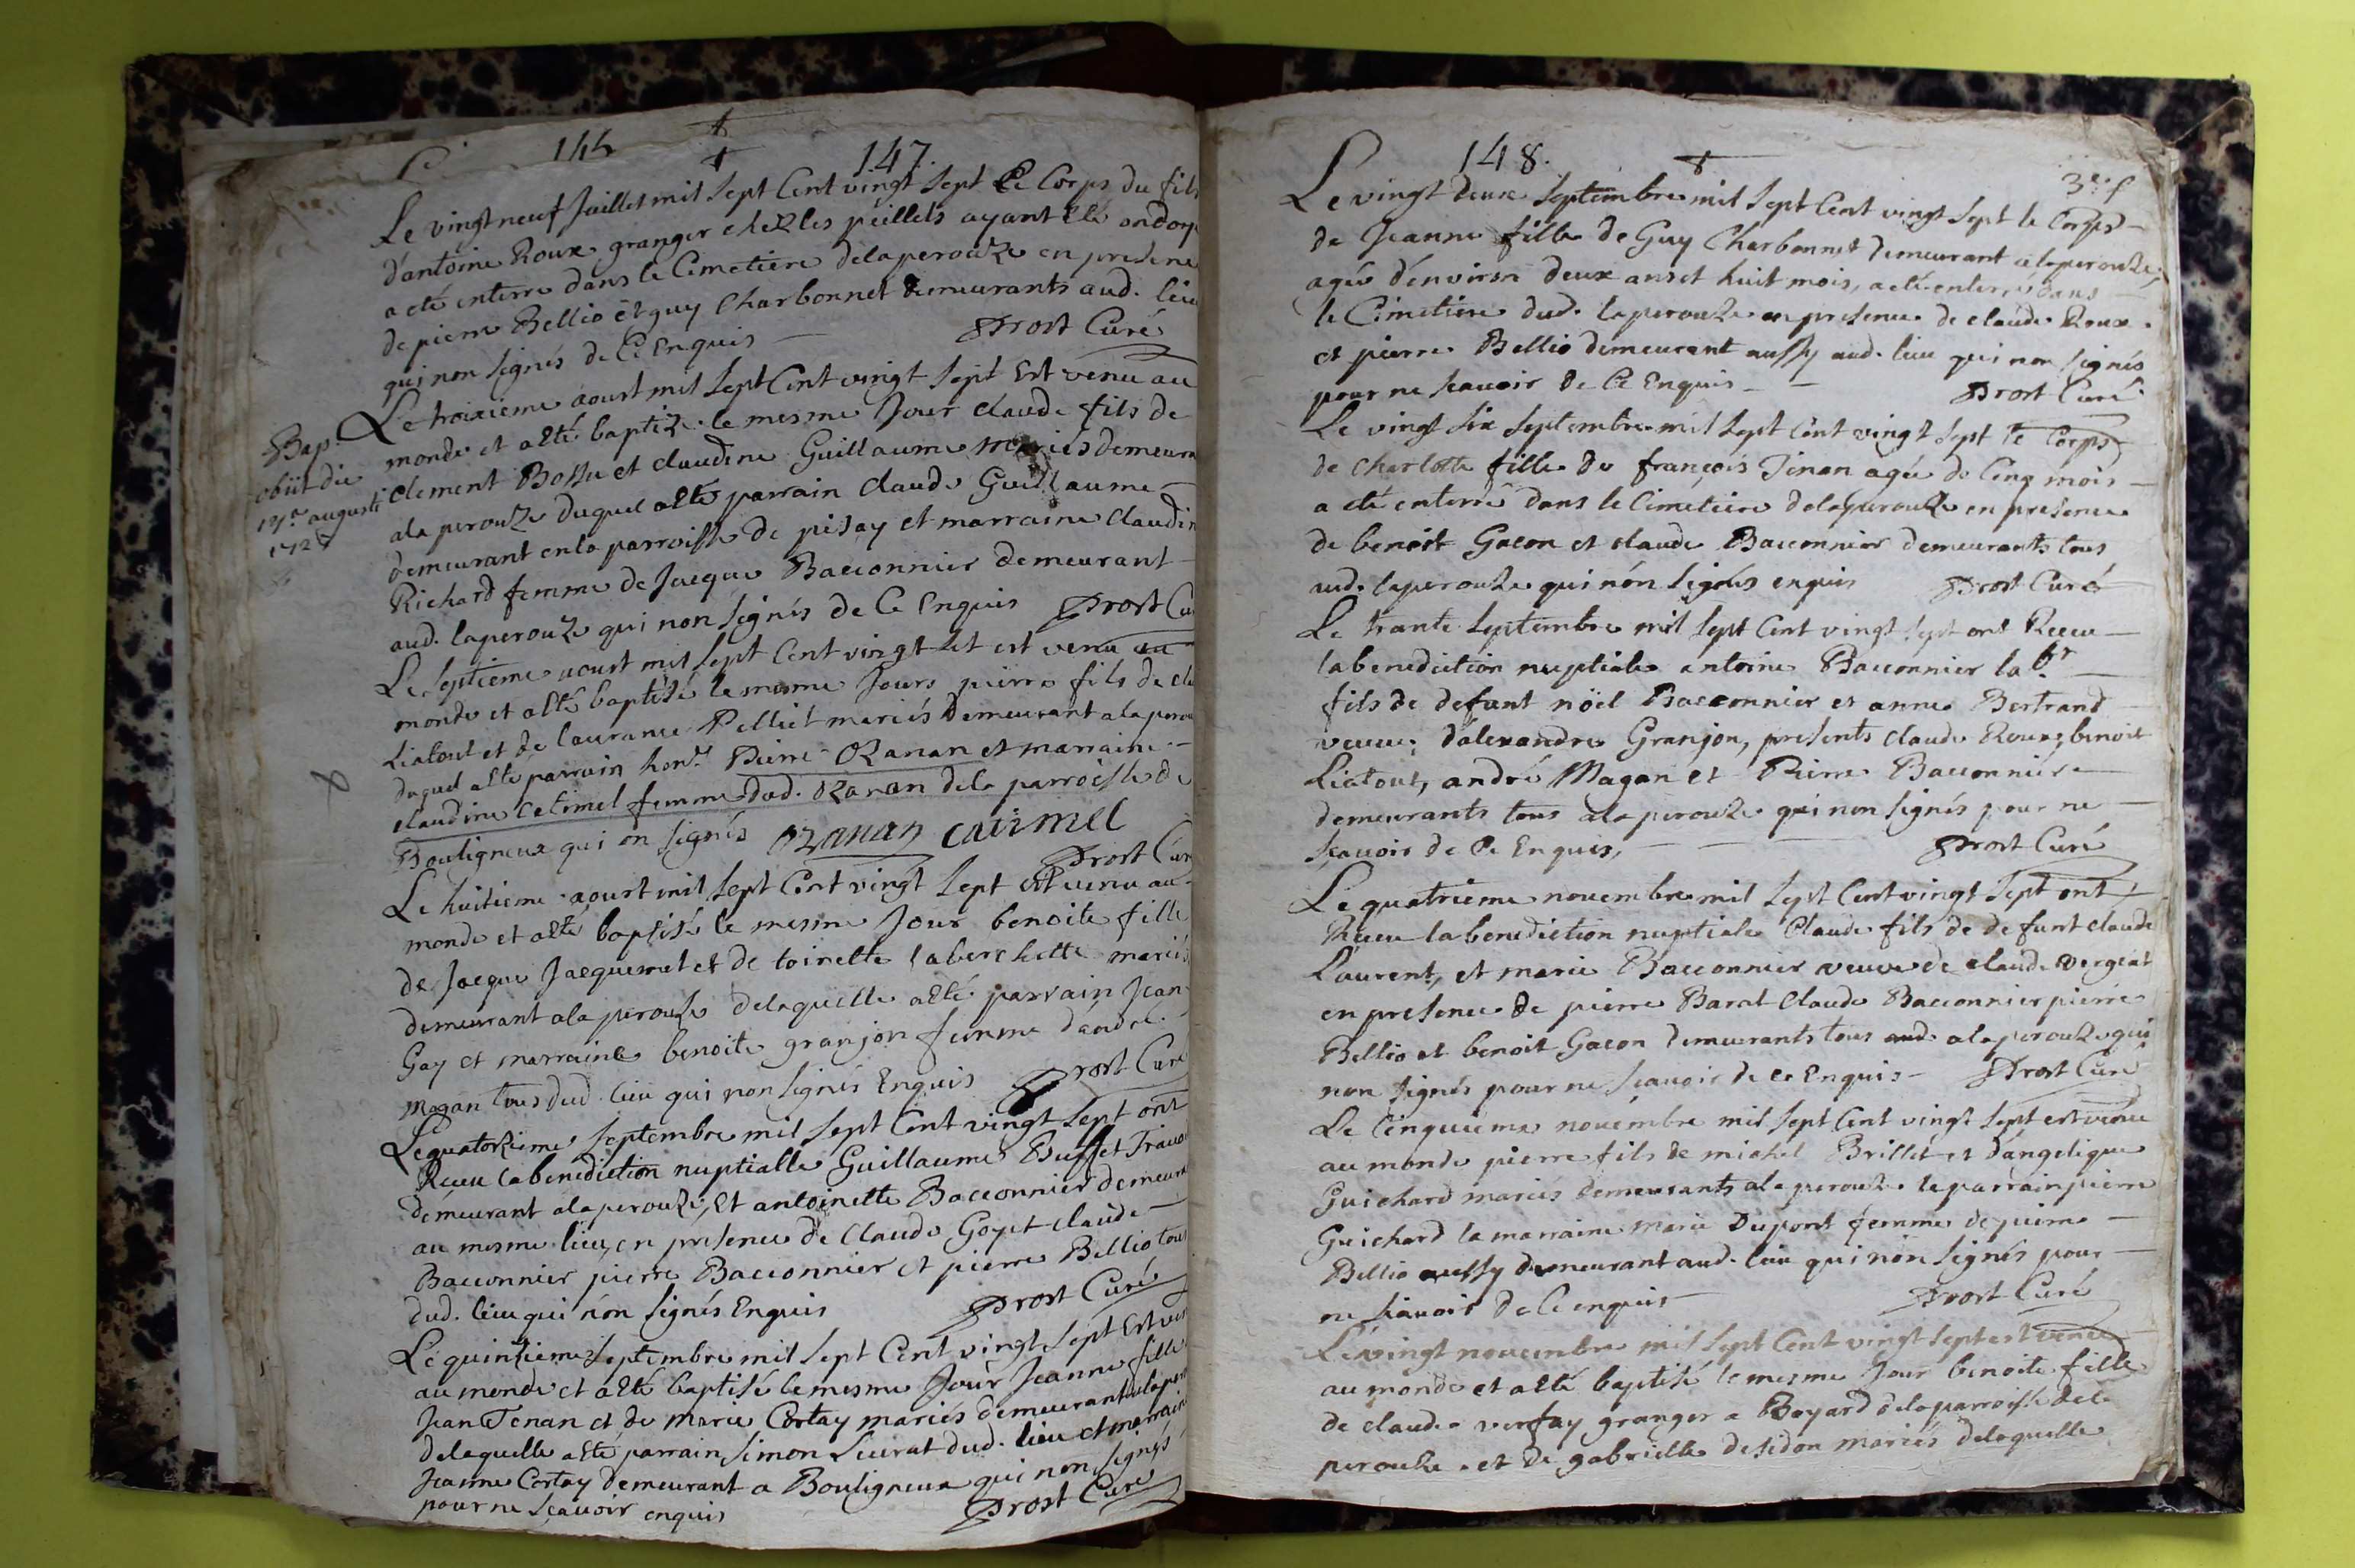 146
147.
Le vingt neuf Juillet mil sept Cent vingt sept Le Corps du fils
d'antoine Roux granger chez les peillets ayant esté ondoyé
a eté enterre dans le Cimetiere delaperouze en presence
de pierre Bellio et guy Charbonnet demeurants aud. lieu
qui non signés de Ce Enquis
Drost Curé
Le troisieme aoust mil sept Cent vingt sept Est venu au
monde et a esté baptizé le mesme Jour claude fils de
clement Bossu et claudine Guillaume mariés demeura
ala perouze duquel a esté parrain claude Guillaume
demeurant en la parroisse de pisay et marraine claudin
Richard femme de Jacque Bacconnier demeurant
aud. laperouze qui non signés de Ce Enquis Drost Cu
Bap.
obiit die
17.a augusti
1727
Le septieme aoust mil sept Cent vingt set est venu au
monde et a esté baptisé le mesme Jours pierre fils de cla
Liatout et de laurance Pelliet mariés demeurant ala perou
duquel a esté parrain hon. Pierre Ozanan et marraine
claudine Catimel femme dud. Ozanan dela parroisse de
Bouligneux qui on signés Ozanan Catimel
Drost Curé
Le huitieme aoust mil sept Cent vingt sept est venu au
monde et a esté baptisé le mesme Jour benoite fille
de Jacque Jacquemet et de toinette laberchette mariés
demeurant ala perouze delaquelle a esté parrain Jean
Gay et marraine benoite granjon femme d'andré
Magan tous dud. lieu qui non signés Enquis Drost Curé
Le quatorzieme septembre mil sept Cent vingt sept ont
Receu la benediction nuptialle Guillaume Buffet Travai
demeurant ala perouze, Et antoinette Bacconnier demeura
au mesme lieu, en presence de Claude Goyet claude
Bacconnier pierre Bacconnier et pierre Bellio tous
dud. lieu qui non signés Enquis Drost Curé
Le quinzieme septembre mil sept Cent vingt sept Est venu
au monde et a esté baptisé le mesme Jour Jeanne fille
Jean Tenan et de Marie Cortay mariés demeurant alaper
delaquelle a esté parrain simon Lieurat dud. lieu et marraine
Jeanne Cortay demeurant a Bouligneux qui non signés
pour ne sçavoir enquis Drost Curé
148.
3e. f
Le vingt deux septembre mil sept Cent vingt sept le Corps
de Jeanne fille de Guy Charbonnet demeurant a laperouze,
agée d'environ deux anset huit mois, a eté enterré dans
le Cimetiere dud. laperouze en presence de claude Roux
et pierre Bellio demeurant aussy aud. lieu qui non signés
pour ne scauoir de Ce Enquis Drost Curé
Le vingt six septembre mil sept Cent vingt sept le Corps
de charlotte fille de françois Tenan agée de Cinq mois
a eté enterré dans le Cimetiere delaperouze en presence
de benoit Gacon et claude Bacconnier demeurants tous
aud. laperouze qui non signés enquis Drost Curé
Le trante septembre mil sept Cent vingt sept ont Receu
la benediction nuptiale antoine Bacconnier la.br
fils de defunt nöel Bacconnier et anne Bertrand
veuve d'alexandre Granjon, presents claude Roux, benoit
Liatout, andré Magan et Pierre Bacconnier
demeurants tous ala perouze qui non signés pour ne
scauoir de Ce Enquis, Drost Curé
Le quatrieme novembre mil sept Cent vingt sept ont
Receu la benediction nuptiale Claude fils de defunt claude
Laurent, et marie Bacconnier veuve de claude vergeat
en presence de pierre Barat claude Bacconnier pierre
Bellio et benoit Gacon demeurants tous aud. ala perouze qui
non signés pour ne scauoir de ce Enquis Drost Curé
Le Cinquieme novembre mil sept Cent vingt sept est venu
au monde pierre fils de michel Brillet et d'angelique
Guichard mariés demeurants ala perouze le parrain pierre
Guichard la marraine marie Dupont femme de pierre
Bellio aussy demeurant aud. lieu qui non signés pour
ne scauoir de Ce enquis Drost Curé
Le vingt novembre mil sept Cent vingt sept est venu
au monde et a esté baptisé le mesme Jour benoite fille
de claude verfay granger a Boyard dela parroisse dela
perouze et de gabrielle desidon mariés delaquelle